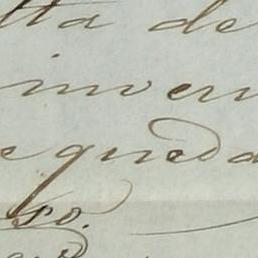 lta de
inven
e queda
so.